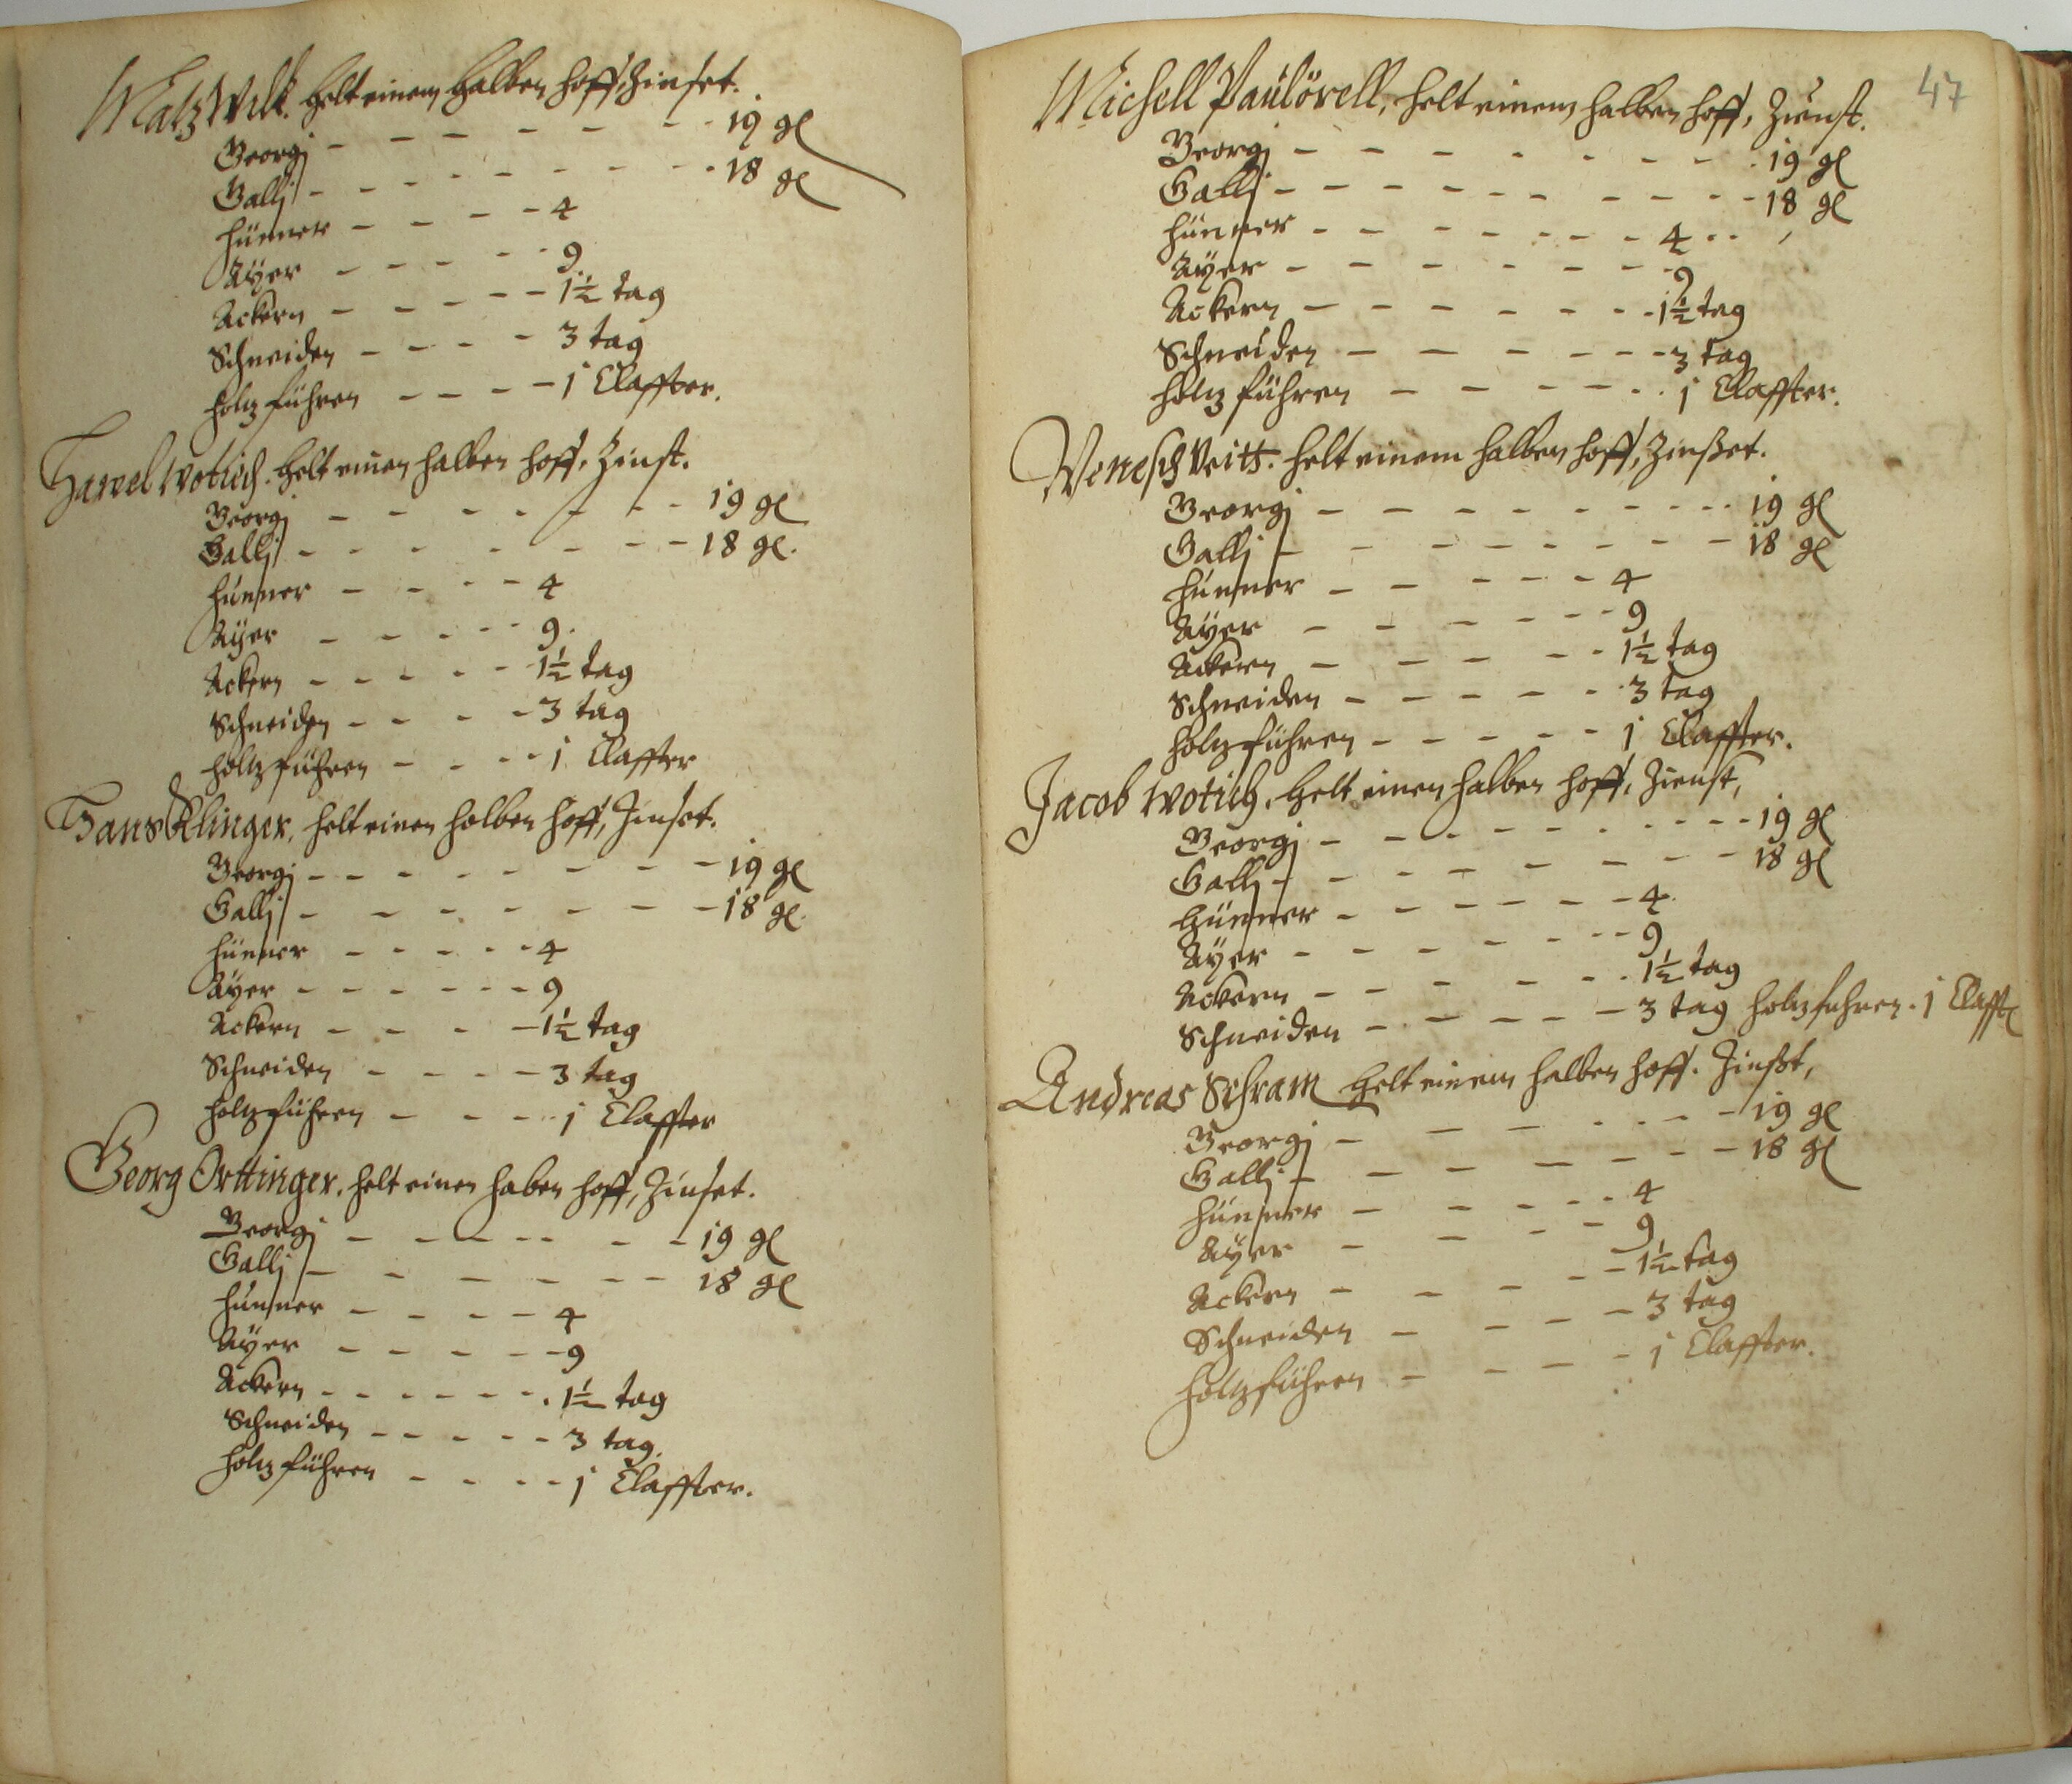 Matz Wilk. helt einem halben hoff, Zinset.
Georgj - - - - - - - 19 gl
Gallj - - - - - - - - 18 gl
hünner - - - - 4
Ayer - - - - - 9
Ackern - - - - - 1½ tag
Schneiden - - - - 3 tag
holtz führen - - - - 1 Claffter.
Hawel Wotisch. helt einen halben hoff, Zinst.
Georgj - - - - - - - 19 gl
Gallj - - - - - - - 18 gl.
hünner - - - - 4
Ayer - - - - - 9.
Ackern - - - - - 1½ tag
Schneiden - - - - 3 tag
holtzführen - - - - 1 Claffter
Hans Klinger, helt einen halben hoff, Zinset.
Georgj - - - - - - - - 19 gl
Gallj - - - - - - - - 18 gl.
hünner - - - - - 4
Ayer - - - - - - 9
Ackern - - - - 1½ tag
Schneiden - - - - 3 tag
holtzführen - - - - 1 Claffter
Georg Orttinger. helt einen haben hoff, Zinset.
Georgj - - - - - - - 19 gl
Gallj - - - - - - - 18 gl
hünner - - - - - 4
Ayer - - - - - 9
Ackern - - - - - - 1½ tag
Schneiden - - - - - 3 tag.
holtz führen - - - - 1 Claffter.
47
Michell Paulörell, helt einem halben hoff, Zienst.
Georgj - - - - - - - - 19 gl
Gallj - - - - - - - - - 18 gl
hünner - - - - - - - 4
Ayer - - - - - - - 9
Ackern - - - - - - - 1½ tag
Schneiden - - - - - - 3 tag
holtz führen - - - - - - 1 Claffter.
Wenesch Veitt. helt einem halben hoff, Zinßet.
Georgj - - - - - - - - - 19 gl
Gallj - - - - - - - - 18 gl
hünner - - - - - 4
Ayer - - - - - - 9
Ackern - - - - - 1½ tag
Schneiden - - - - - - 3 tag
holtzführen - - - - - 1 Claffter.
Jacob Wotisch, helt einen halben hoff, Zienst,
Georgj - - - - - - - - - 19 gl
Gallj - - - - - - - - 18 gl
hünner - - - - - - 4.
Ayer - - - - - - - 9
Ackern - - - - - - 1½ tag
Schneiden - - - - - 3 tag holtzfuhren. 1 Clafft
Andreas Schram helt einem halben hoff. Zinßt,
Georgj - - - - - - - 19 gl
Gallj - - - - - - - 18 gl
hünner - - - - - 4
Ayer - - - - - 9
Ackern - - - - - 1½ tag
Schneiden - - - - 3 tag
holtzführen - - - - 1 Claffter.